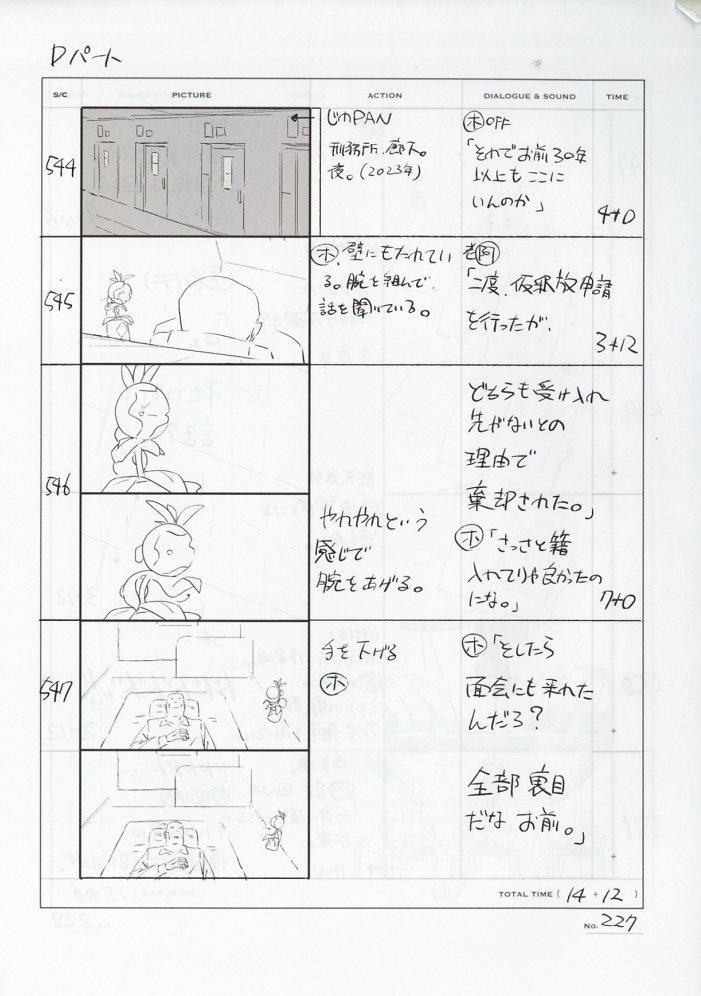 Dパート
S/C PICTURE ACTION DIALOGUE & SOUND TIME
544
じわPAN
刑務所、廊下。
夜。(2023年)
ホ OFF
「それでお前30年
以上もここに
いんのか」
4+0
545
ホ、壁にもたれてい
る。腕を組んで、
話を聞いている。
老阿
「二度、仮釈放申請
を行ったが、
3+12
546
どちらも受け入れ
先がないとの
理由で
棄却された。」
やれやれという
感じで
腕をあげる。
ホ「さっさと籍
入れてりゃ良かったの
にな。」
7+0
547
手を下げる
ホ
ホ「そしたら
面会にも来れた
んだろ?
全部裏目
だな お前。」
TOTAL TIME ( 14 + 12 )
No. 227